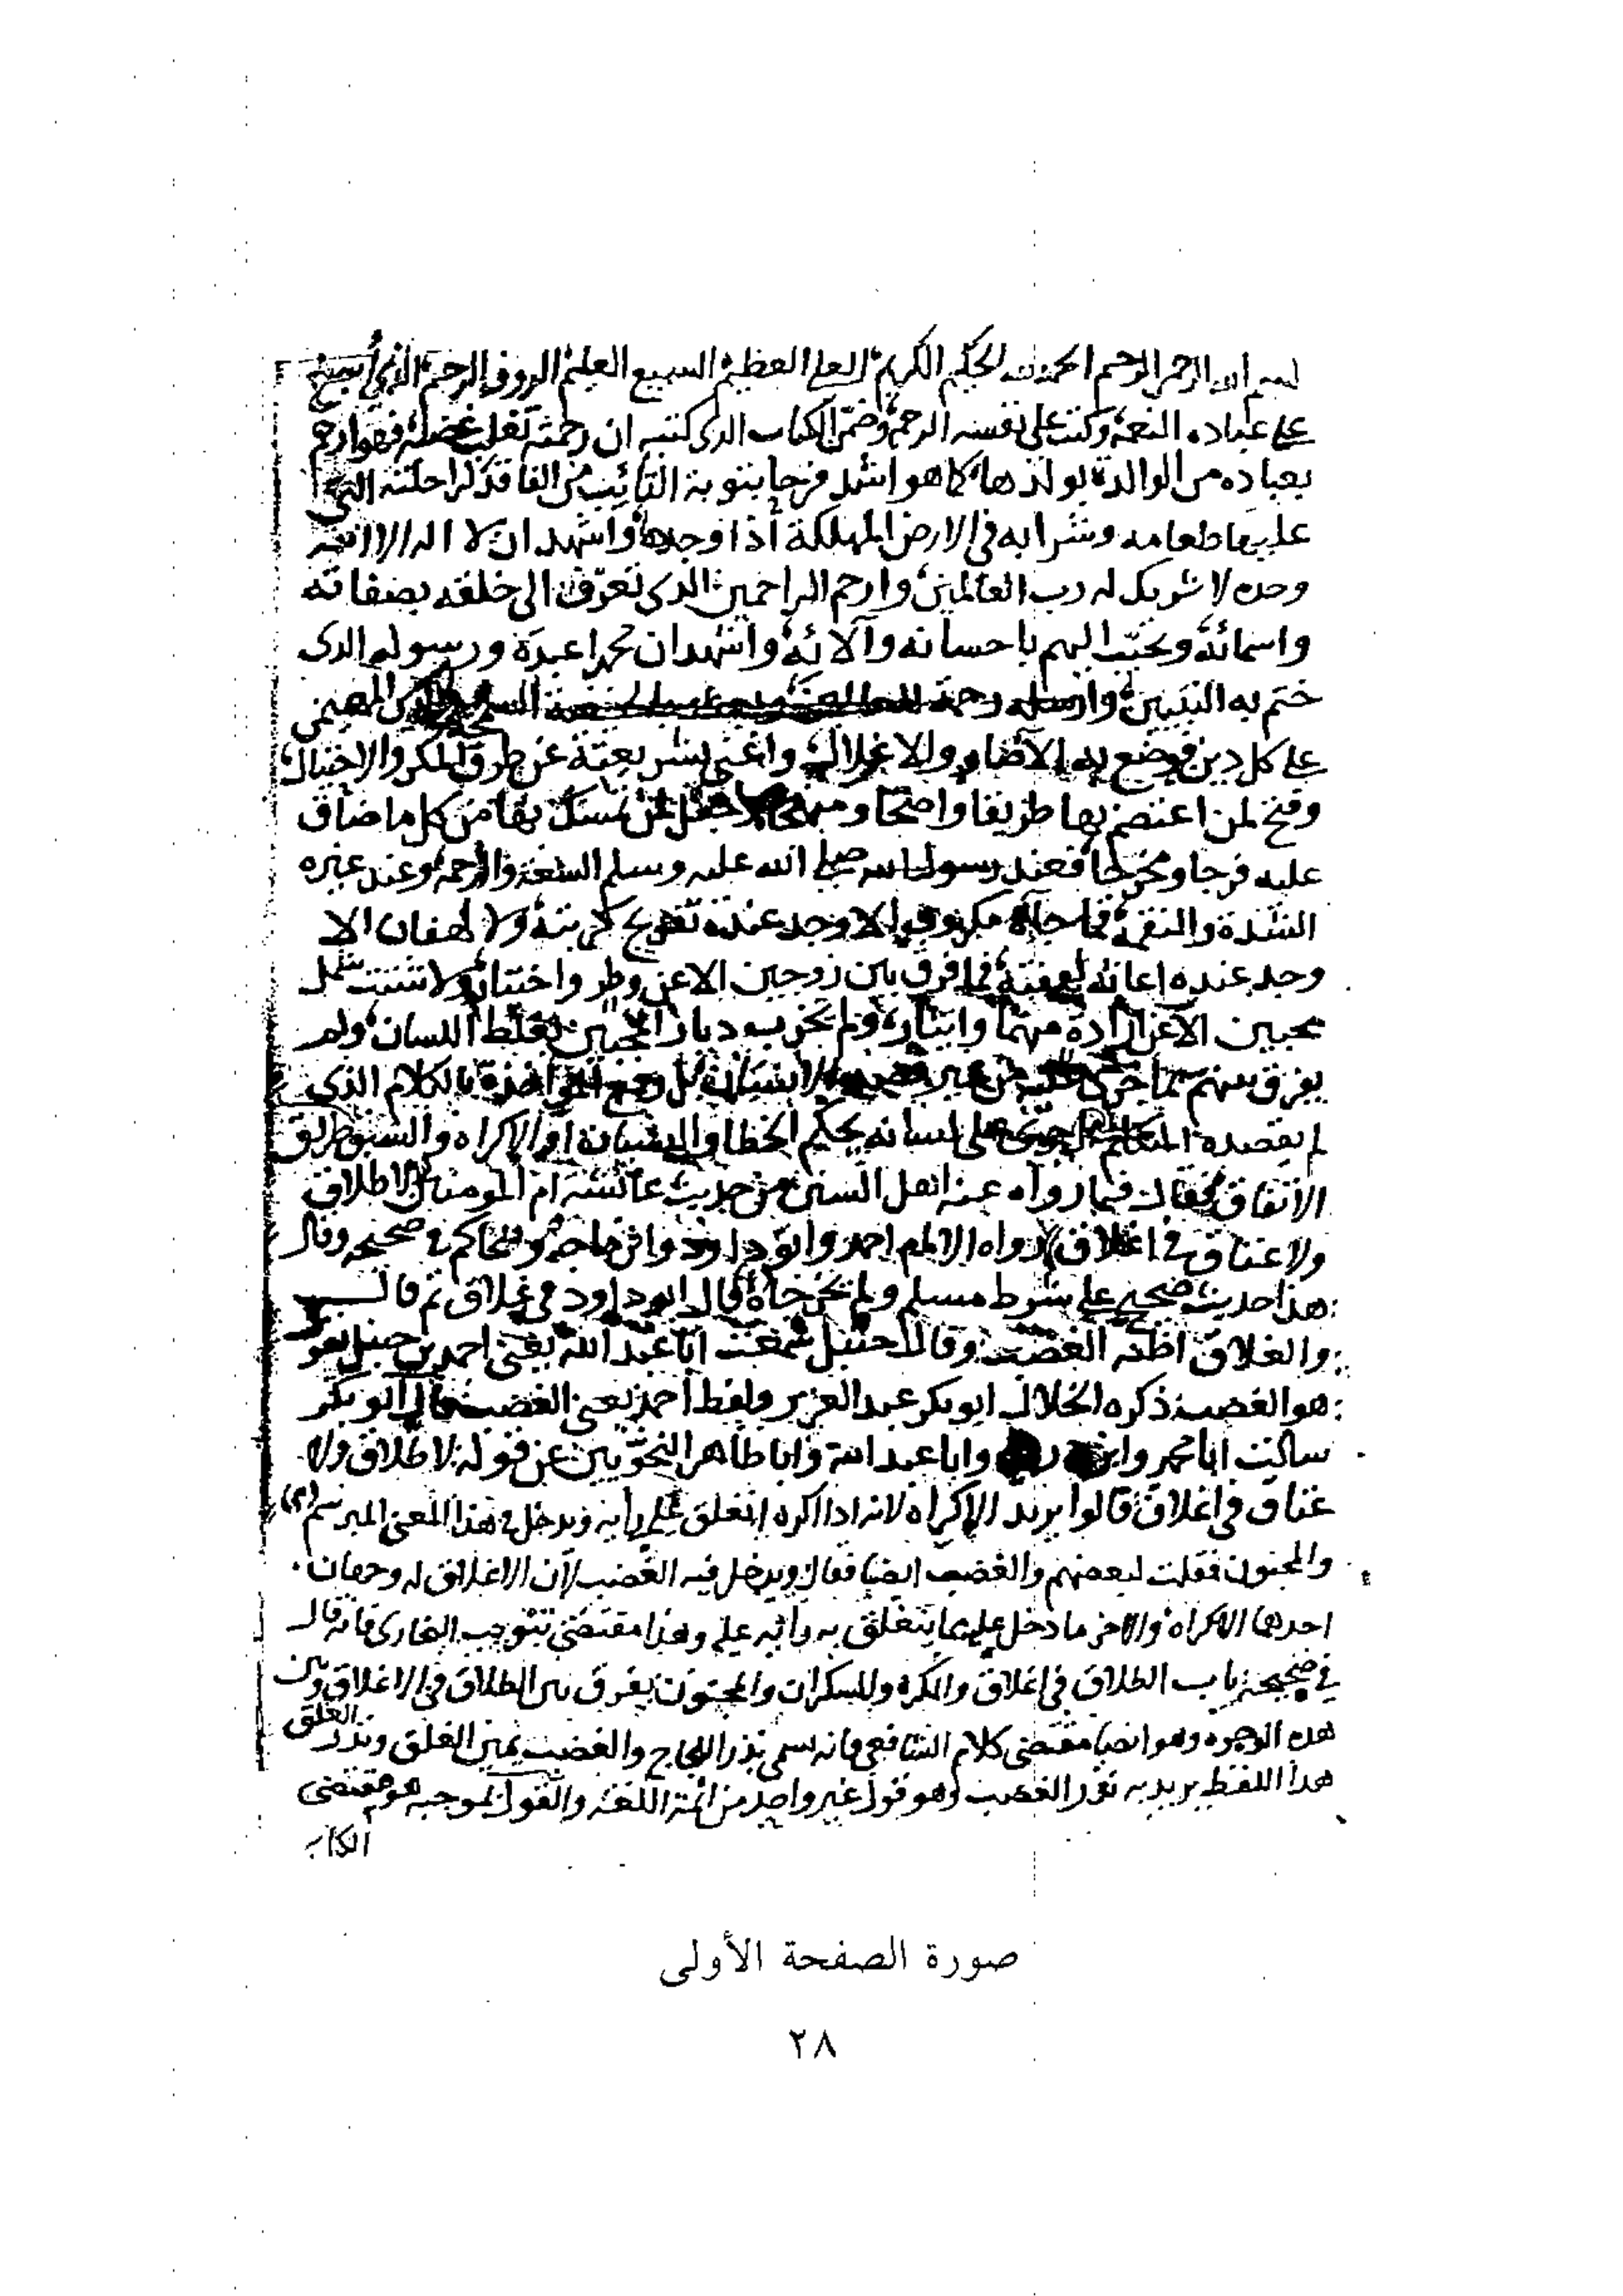 بسم الله الرحمن الرحيم الحمد لله الحكيم الكريم العلي العظيم السميع العليم الرءوف الرحيم الذي أسبغ
على عباده النعمة وكتب على نفسه الرحمة وضمن الكتاب الذي كتبه ان رحمته تغلب غضبه فهو ارحم
بعباده من الوالدة بولدها كما هو اشد فرحا بتوبة التائب من الفاقد لراحلته التي
عليها طعامه وشرابه في الارض المهلكة اذا وجدها واشهد ان لا اله الا الله
وحده لا شريك له رب العالمين وارحم الراحمين الذي تعرف الى خلقه بصفاته
واسمائه وتحبب اليهم باحسانه وآلائه واشهد ان محمدا عبده ورسوله الذي
ختم به النبيين وارسله رحمة للعالمين المهيمن
على كل دين فوضع به الآصار والاغلال واغنى بشريعته عن طرق المكر والاحتيال
وفتح لمن اعتصم بها طريقا واضحا ومنهجا وجعل لمن تمسك بها من كل ما ضاق
عليه فرجا ومخرجا فعند رسول الله صلى الله عليه وسلم السعة والرحمة وعند غيره
الشدة والنقمة فما جاءه مكروب الا وجد عنده تفريج كربته ولا لهفان الا
وجد عنده اعانة لهفته فما فرق بين زوجين الا عن وطر واختيار ولا شتت شمل
محبين الا عن ارادة منهما وايثار ولم يخرب ديار المحبين بغلط اللسان ولم
يفرق بينهم بما جرى عليه من غير بل رفع المؤاخذة بالكلام الذي
لم يقصده المتكلم على لسانه بحكم الخطأ والنسيان او الاكراه والسبق طريق
الاتفاق فقال فيما رواه عنه اهل السنن من حديث عائشة ام المومنين لا طلاق
ولا عتاق في اغلاق رواه الامام احمد وابو داود وابن ماجه والحاكم في صحيحه وقال
هذا حديث صحيح على شرط مسلم ولم يخرجاه قال ابو داود في غلاق ثم قال
والغلاق اظنه الغضب وقال حنبل سمعت ابا عبد الله يعني احمد بن حنبل يقول
هو الغضب ذكره الخلال ابو بكر عبد العزيز ولفظ احمد يعني الغضب قال ابو بكر
سالت ابا محمد وابن دريد وابا عبد الله وابا طاهر النحويين عن قوله لا طلاق ولا
عتاق في اغلاق قالوا يريد الاكراه لانه اذا اكره انغلق عليه رأيه ويدخل في هذا المعنى المبرسم (٢)
والمجنون فقلت لبعضهم والغضب ايضا فقال ويدخل فيه الغضب لان الاغلاق له وجهان
احدهما الاكراه والاخر ما دخل عليه مما ينغلق به رأيه عليه وهذا مقتضى تبويب البخاري فانه قال
في صحيحه باب الطلاق في اغلاق والكره والسكران والمجنون يفرق بين الطلاق في الاغلاق وبين
هذه الوجوه وهو ايضا مقتضى كلام الشافعي فانه سمى نذر اللجاج والغضب يمين الغلق ونذر الغلق
هذا اللفظ يريد به نذر الغضب وهو قول غير واحد من ائمة اللغة والقول بموجبه هو مقتضى
الكتاب
صورة الصفحة الأولى
٢٨